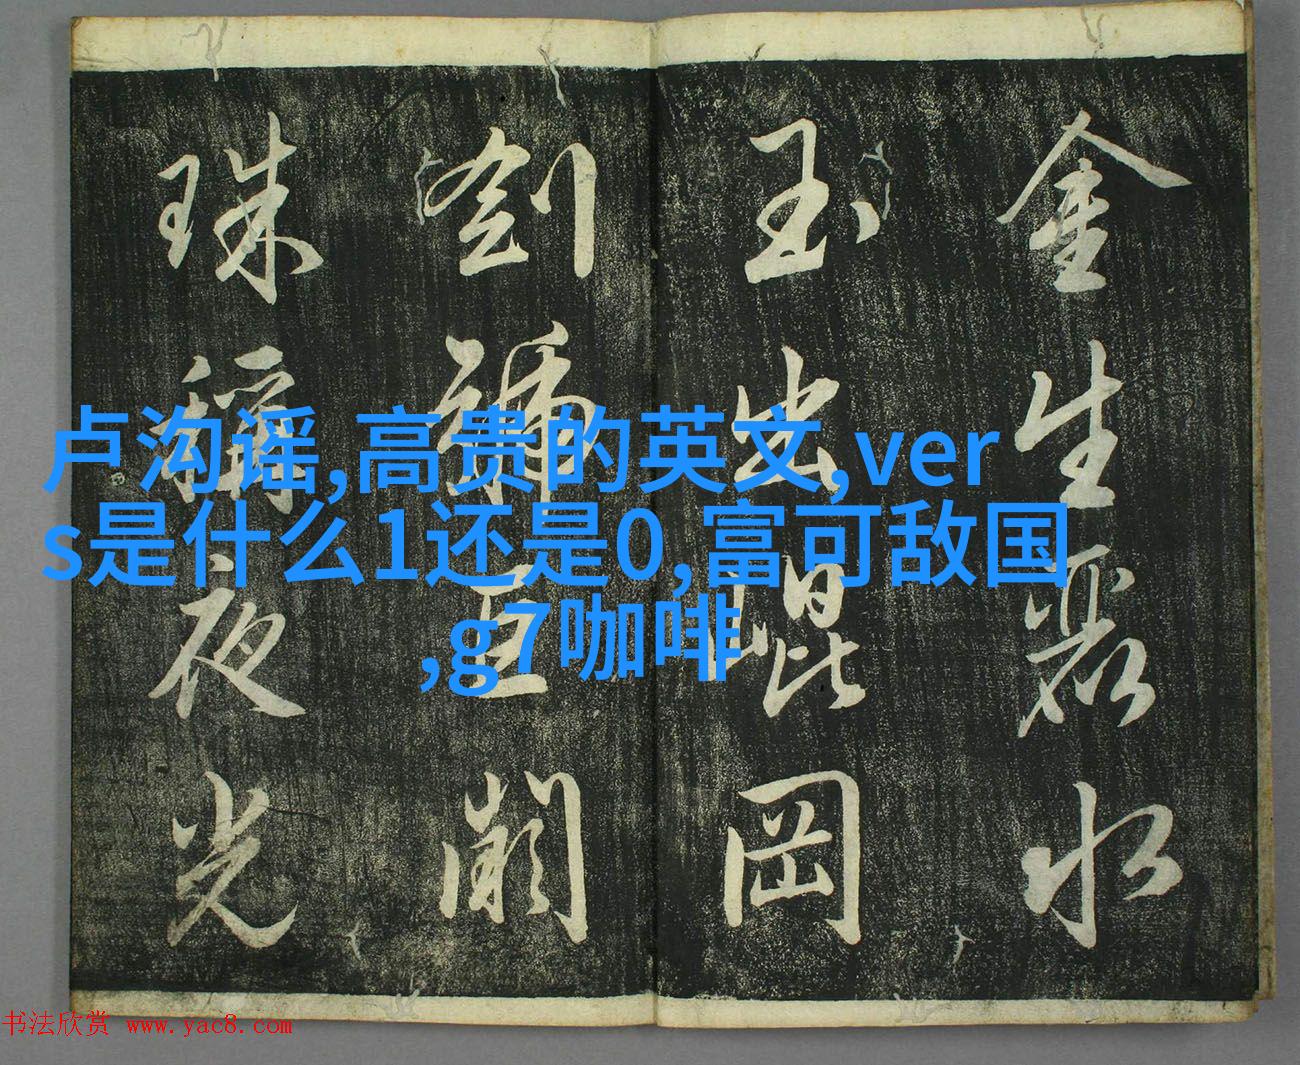 金生麗水
玉出崐岡
劍號巨闕
珠稱夜光
卢沟谣,高贵的英文,ver
s是什么1还是0,富可敌国
,g7咖啡
书法欣赏 www.yac8.com